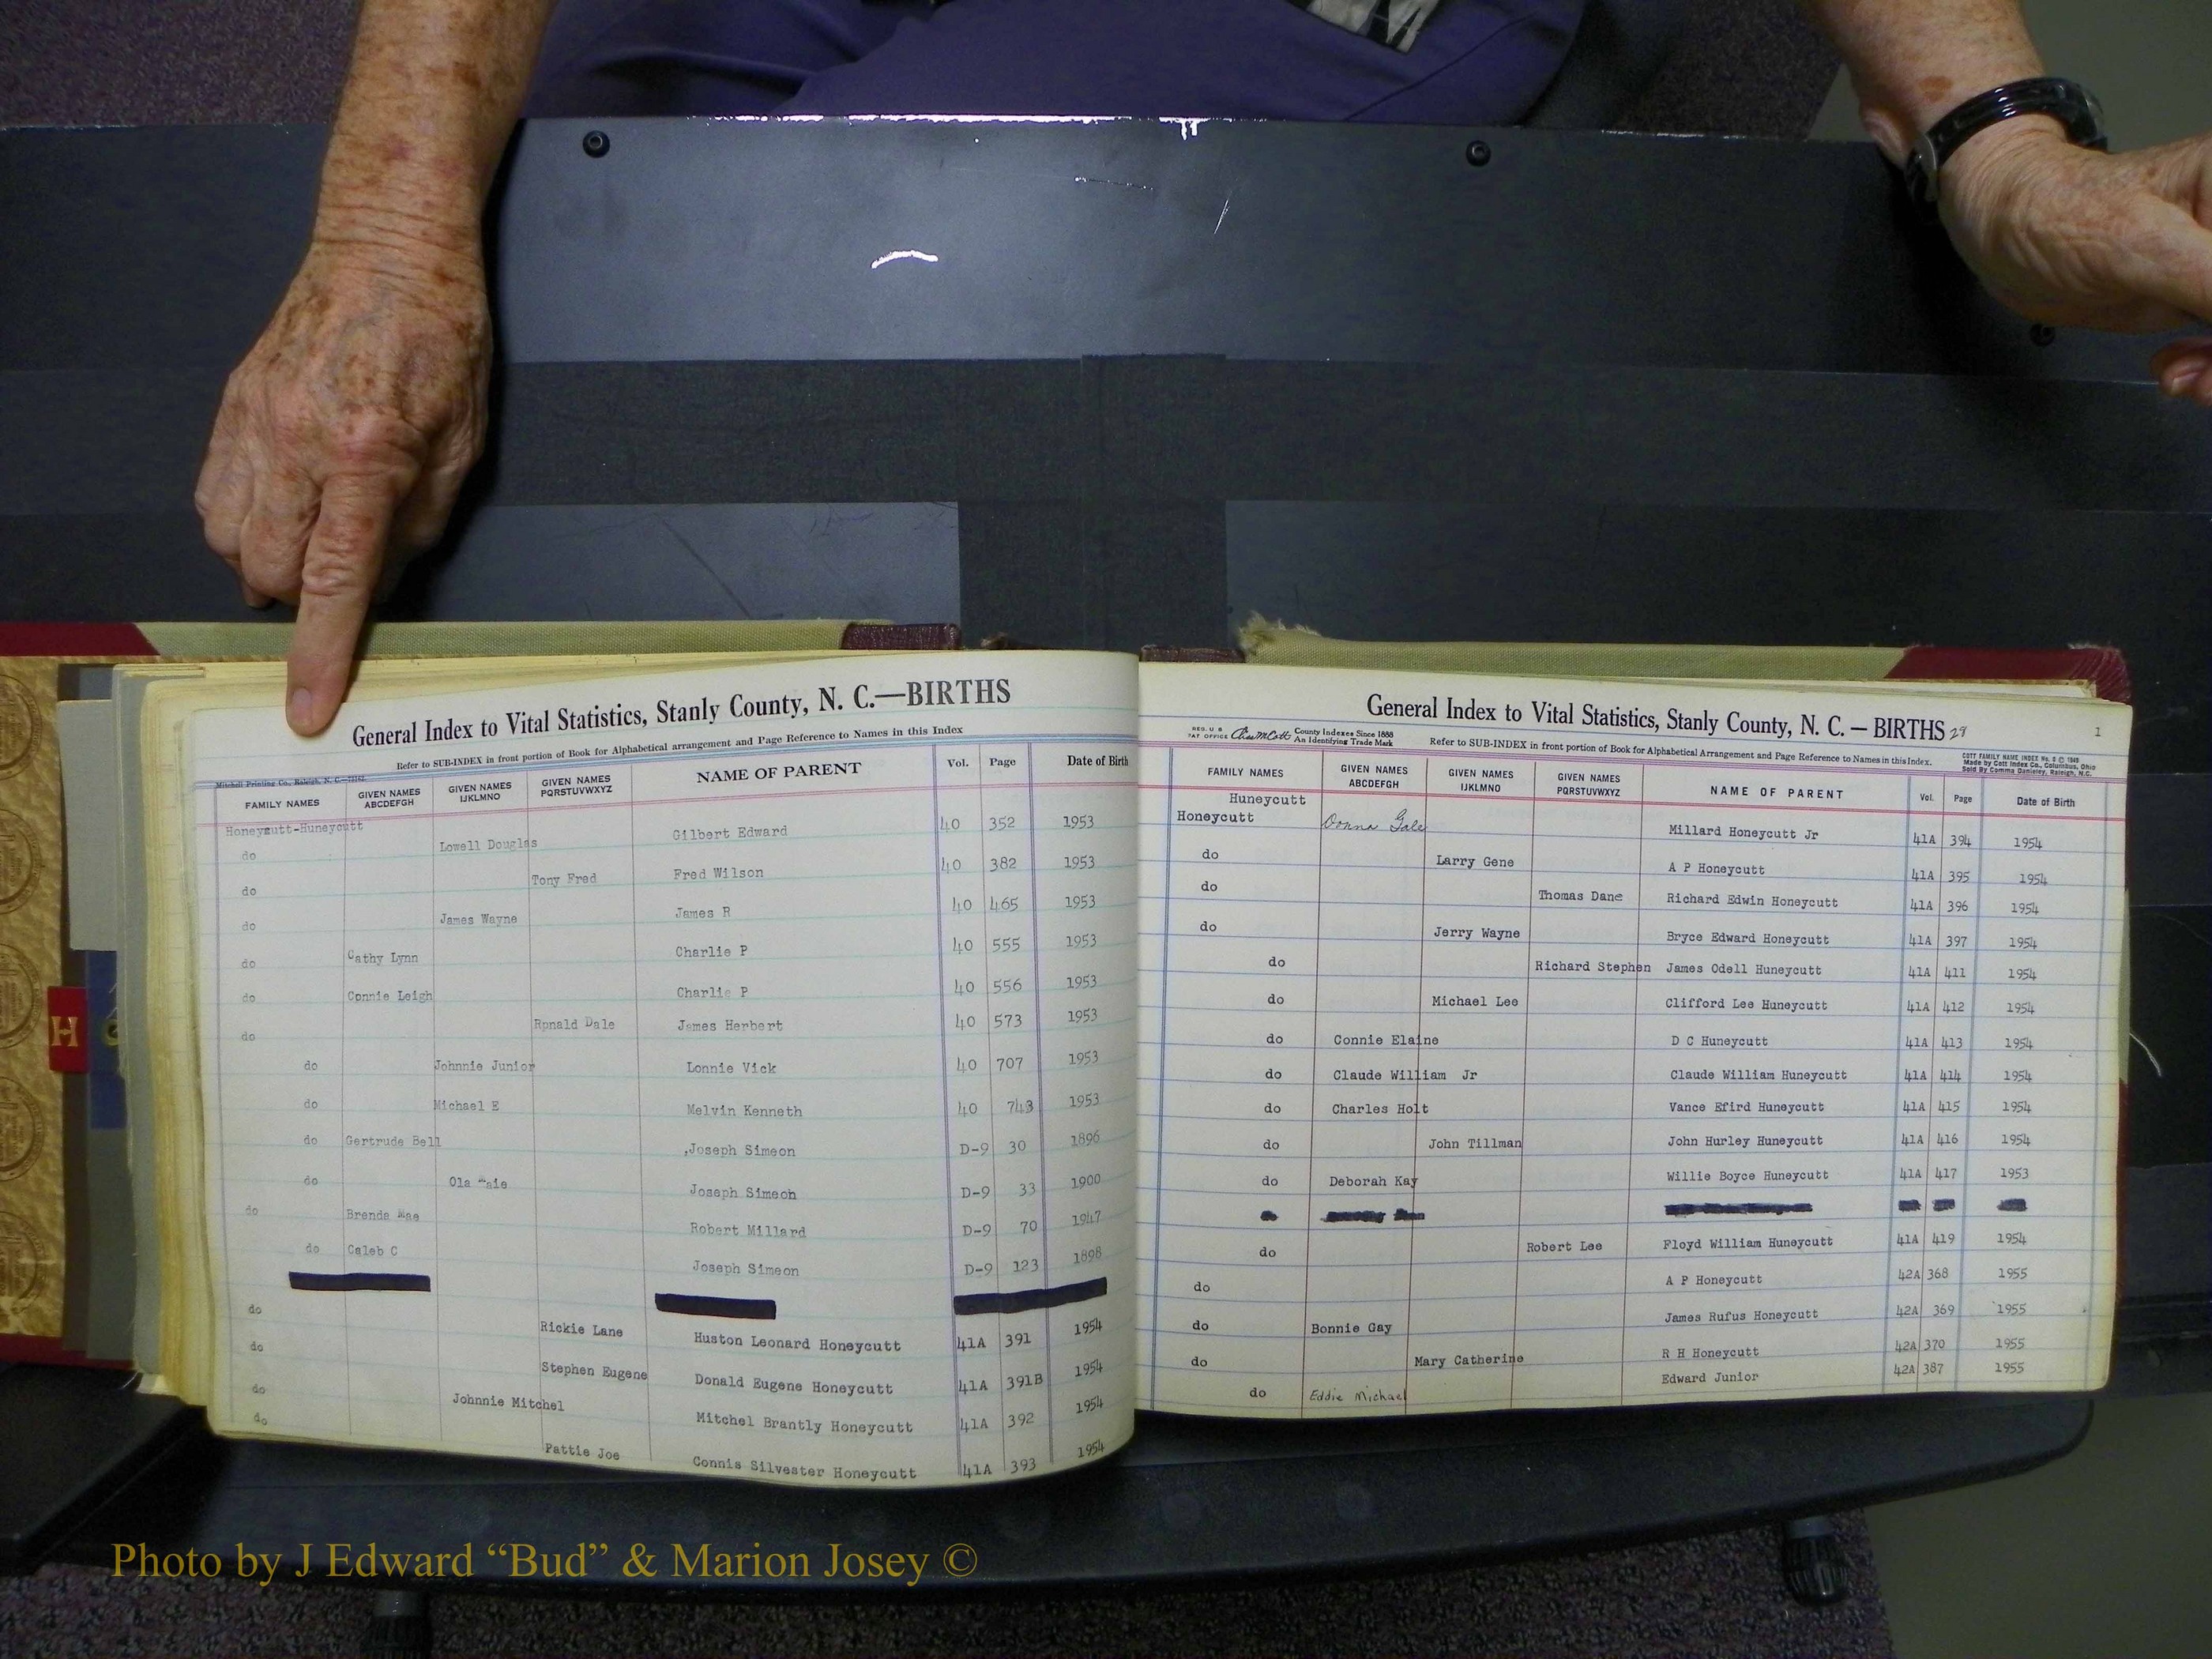 General Index to Vital Statistics, Stanly County, N. C.—BIRTHS
Refer to SUB-INDEX in front portion of Book for Alphabetical arrangement and Page Reference to Names in this Index
Mitchell Printing Co., Raleigh, N. C.
FAMILY NAMES GIVEN NAMES ABCDEFGH GIVEN NAMES IJKLMNO GIVEN NAMES PQRSTUVWXYZ NAME OF PARENT Vol. Page Date of Birth
Honeycutt-Huneycutt Lowell Douglas Gilbert Edward 40 352 1953
do Tony Fred Fred Wilson 40 382 1953
do James Wayne James R 40 465 1953
do Cathy Lynn Charlie P 40 555 1953
do Connie Leigh Charlie P 40 556 1953
do Ronald Dale James Herbert 40 573 1953
do
do Johnnie Junior Lonnie Vick 40 707 1953
do Michael E Melvin Kenneth 40 743 1953
do Gertrude Bell Joseph Simeon D-9 30 1896
do Ola Joseph Simeon D-9 33 1900
do Brenda Mae Robert Millard D-9 70 1947
do Caleb C Joseph Simeon D-9 123 1898
do Rickie Lane Huston Leonard Honeycutt 41A 391 1954
do Stephen Eugene Donald Eugene Honeycutt 41A 391B 1954
do Johnnie Mitchel Mitchel Brantly Honeycutt 41A 392 1954
do Pattie Joe Connis Silvester Honeycutt 41A 393 1954
General Index to Vital Statistics, Stanly County, N. C. — BIRTHS 28 1
REG. U S PAT OFFICE County Indexes Since 1888 An Identifying Trade Mark
Refer to SUB-INDEX in front portion of Book for Alphabetical Arrangement and Page Reference to Names in this Index.
COTT FAMILY NAME INDEX
Made by Cott Index Co., Columbus, Ohio
Raleigh, N.C.
FAMILY NAMES GIVEN NAMES ABCDEFGH GIVEN NAMES IJKLMNO GIVEN NAMES PQRSTUVWXYZ NAME OF PARENT Vol. Page Date of Birth
Huneycutt
Honeycutt Donna Gale Millard Honeycutt Jr 41A 394 1954
do Larry Gene A P Honeycutt 41A 395 1954
do Thomas Dane Richard Edwin Honeycutt 41A 396 1954
do Jerry Wayne Bryce Edward Honeycutt 41A 397 1954
do Richard Stephen James Odell Huneycutt 41A 411 1954
do Michael Lee Clifford Lee Huneycutt 41A 412 1954
do Connie Elaine D C Huneycutt 41A 413 1954
do Claude William Jr Claude William Huneycutt 41A 414 1954
do Charles Holt Vance Efird Huneycutt 41A 415 1954
do John Tillman John Hurley Huneycutt 41A 416 1954
do Deborah Kay Willie Boyce Huneycutt 41A 417 1953
do Robert Lee Floyd William Huneycutt 41A 419 1954
do A P Honeycutt 42A 368 1955
do Bonnie Gay James Rufus Honeycutt 42A 369 1955
do Mary Catherine R H Honeycutt 42A 370 1955
do Eddie Michael Edward Junior 42A 387 1955
H
Photo by J Edward “Bud” & Marion Josey ©